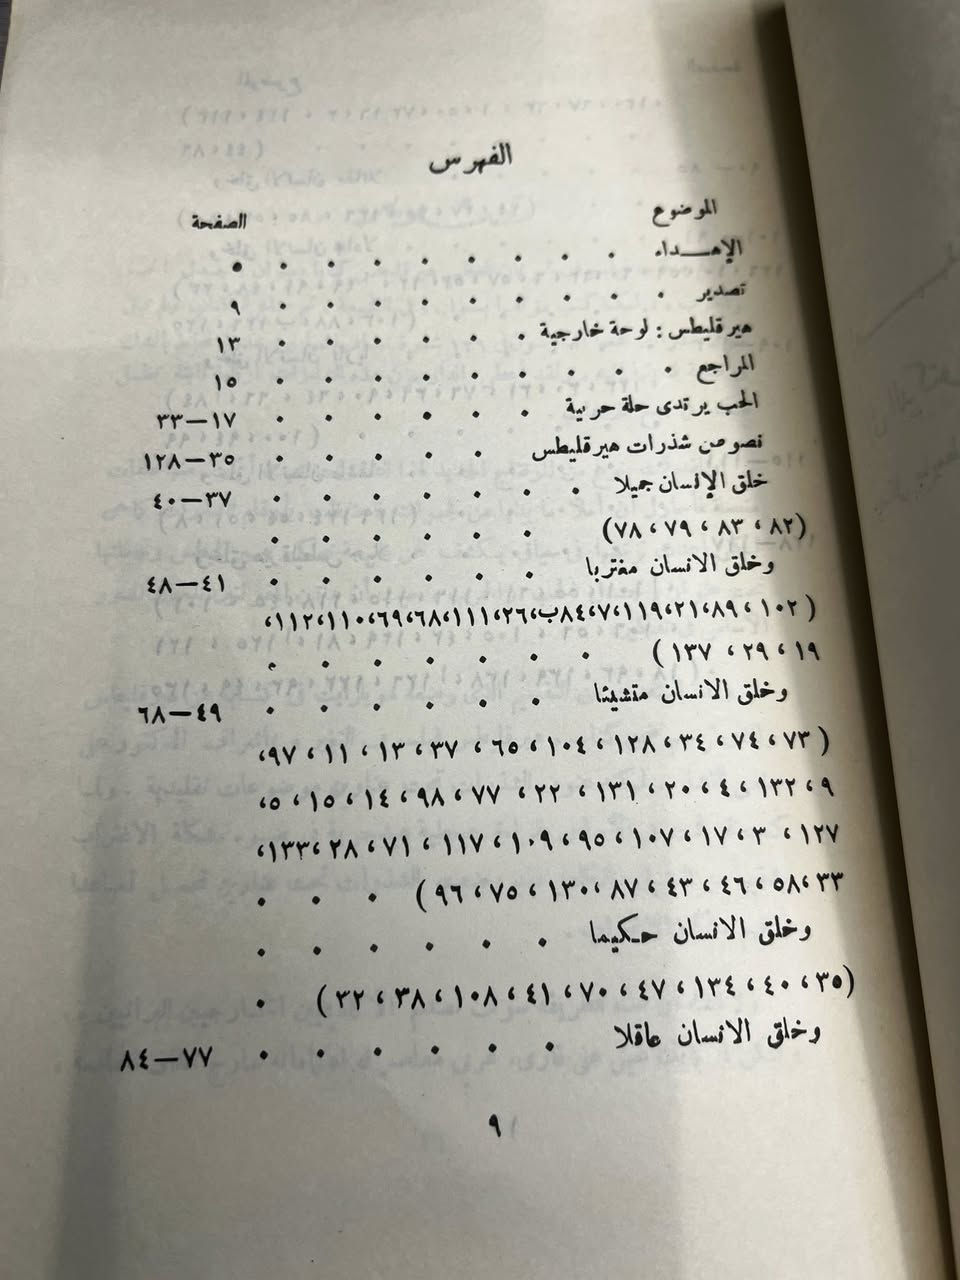 الفهرس
الموضوع الصفحة
الإهـــداء . . . . . . . . ٥
تصدير . . . . . . . . . ٩
هيرقليطس : لوحة خارجية . . . . . . ١٣
المراجع . . . . . . . . . ١٥
الحب يرتدى حلة حربية . . . . . . ١٧—٣٣
نصوص شذرات هيرقليطس . . . . . ٣٥—١٢٨
خلق الإنسان جميلا . . . . . . . ٣٧—٤٠
(٨٢ ، ٨٣ ، ٧٩ ، ٧٨) . . . . . .
وخلق الانسان مغتربا . . . . . . ٤١—٤٨
( ١٠٢ ، ٨٩ ،٢١ ،١١٩ ،٧ ،٨٤ب ،٢٦ ،١١١ ،٦٨ ،٦٩ ،١١٠ ،١١٢ ،
١٩ ، ٢٩ ، ١٣٧ ) . . . . . . .
وخلق الانسان متشيئا . . . . . . ٤٩—٦٨
( ٧٣ ، ٧٤ ، ٣٤ ، ١٢٨ ، ١٠٤ ، ٦٥ ، ٣٧ ، ١٣ ، ١١ ، ٩٧ ،
٩ ، ١٣٢ ، ٤ ، ٢٠ ، ١٣١ ، ٢٢ ، ٧٧ ، ٩٨ ، ١٤ ، ١٥ ، ٥ ،
١٢٧ ، ٣ ، ١٧ ، ١٠٧ ، ٩٥ ، ١٠٩ ، ١١٧ ، ٧١ ، ٢٨ ، ١٣٣ ،
٣٣ ، ٥٨ ، ٤٦ ، ٤٣ ، ٨٧ ، ١٣٠ ، ٧٥ ، ٩٦ ) . . .
وخلق الانسان حـكيما . . . . . .
(٣٥ ، ٤٠ ، ١٣٤ ، ٤٧ ، ٧٠ ، ٤١ ، ١٠٨ ، ٣٨ ، ٣٢ ) .
وخلق الانسان عاقلا . . . . . . ٧٧—٨٤
٩